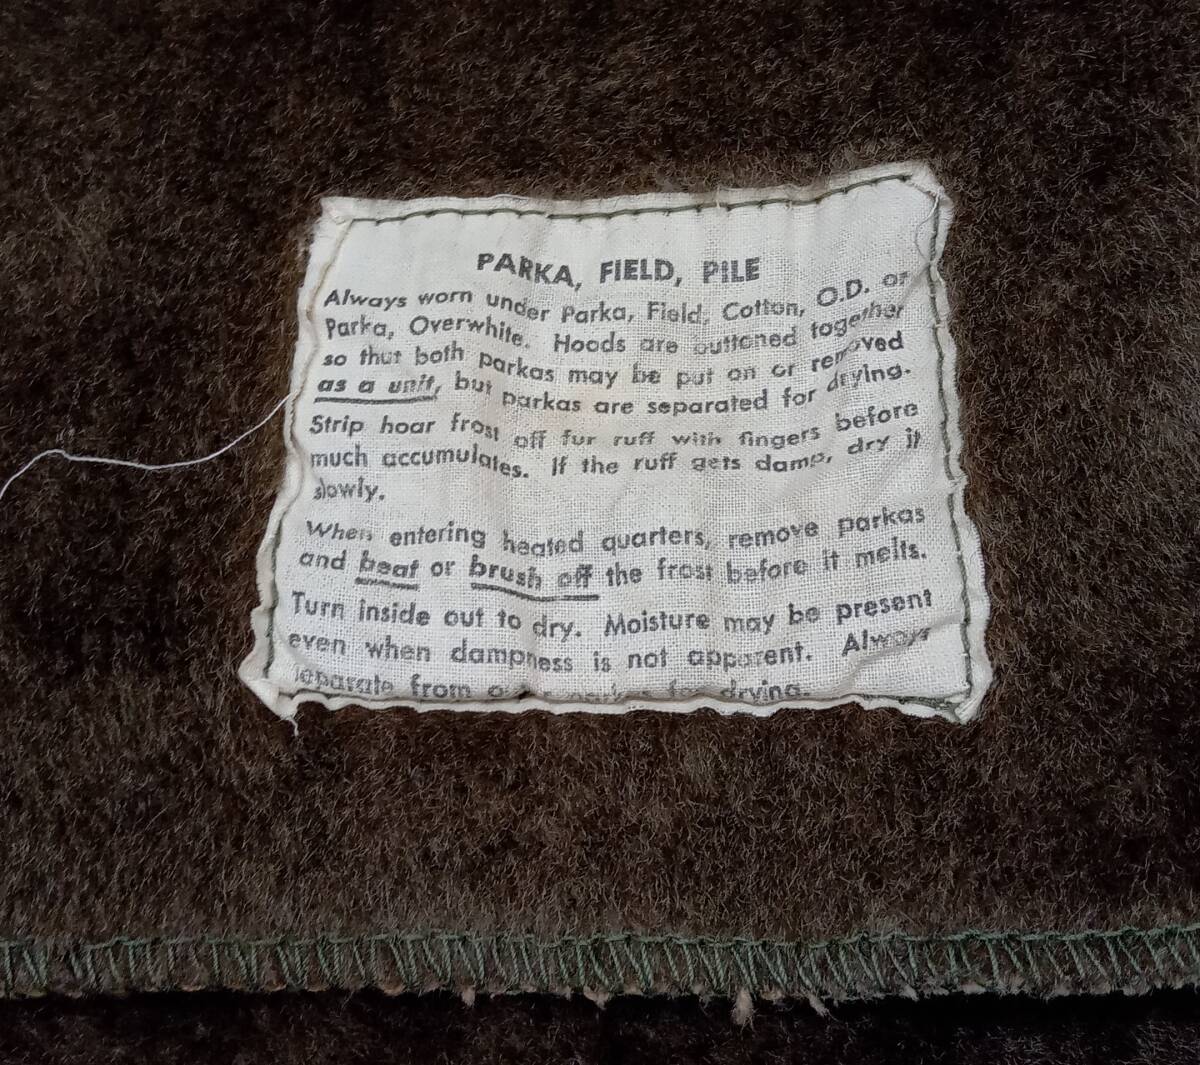 PARKA, FIELD, PILE
Always worn under Parka, Field, Cotton, O.D. or
Parka, Overwhite. Hoods are buttoned together
so that both parkas may be put on or removed
as a unit, but parkas are separated for drying.
Strip hoar frost off fur ruff with fingers before
much accumulates. If the ruff gets damp, dry it
slowly.
When entering heated quarters, remove parkas
and beat or brush off the frost before it melts.
Turn inside out to dry. Moisture may be present
even when dampness is not apparent. Always
separate from for drying.